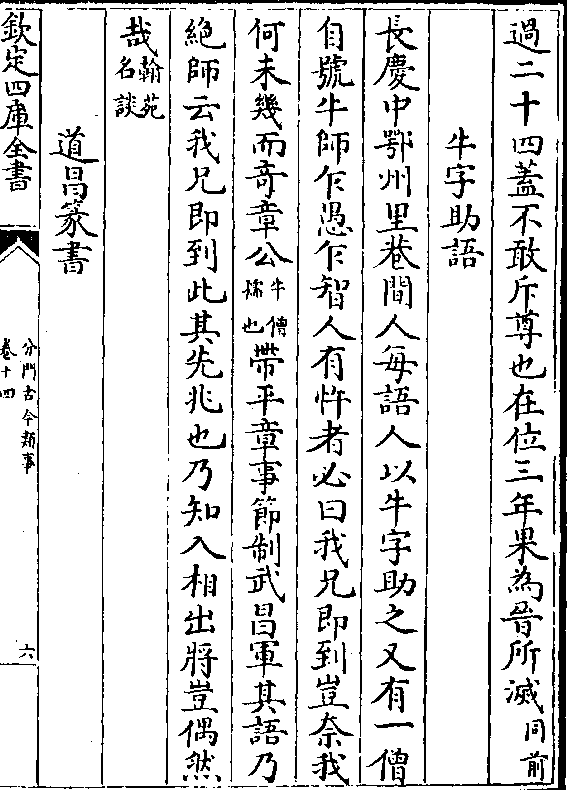 過二十四蓋不敢斥尊也在位三年果為晉所滅同前
牛字助語
長慶中鄂州里巷間人每語人以牛字助之又有一僧
自號牛師乍愚乍智人有忤者必曰我兄即到豈奈我
何未幾而竒章公牛僧孺也帶平章事節制武昌軍其語乃
絶師云我兄即到此其先兆也乃知入相出將豈偶然
哉翰苑名談
道昌篆書
欽定四庫全書
分門古今類事
卷十四
六